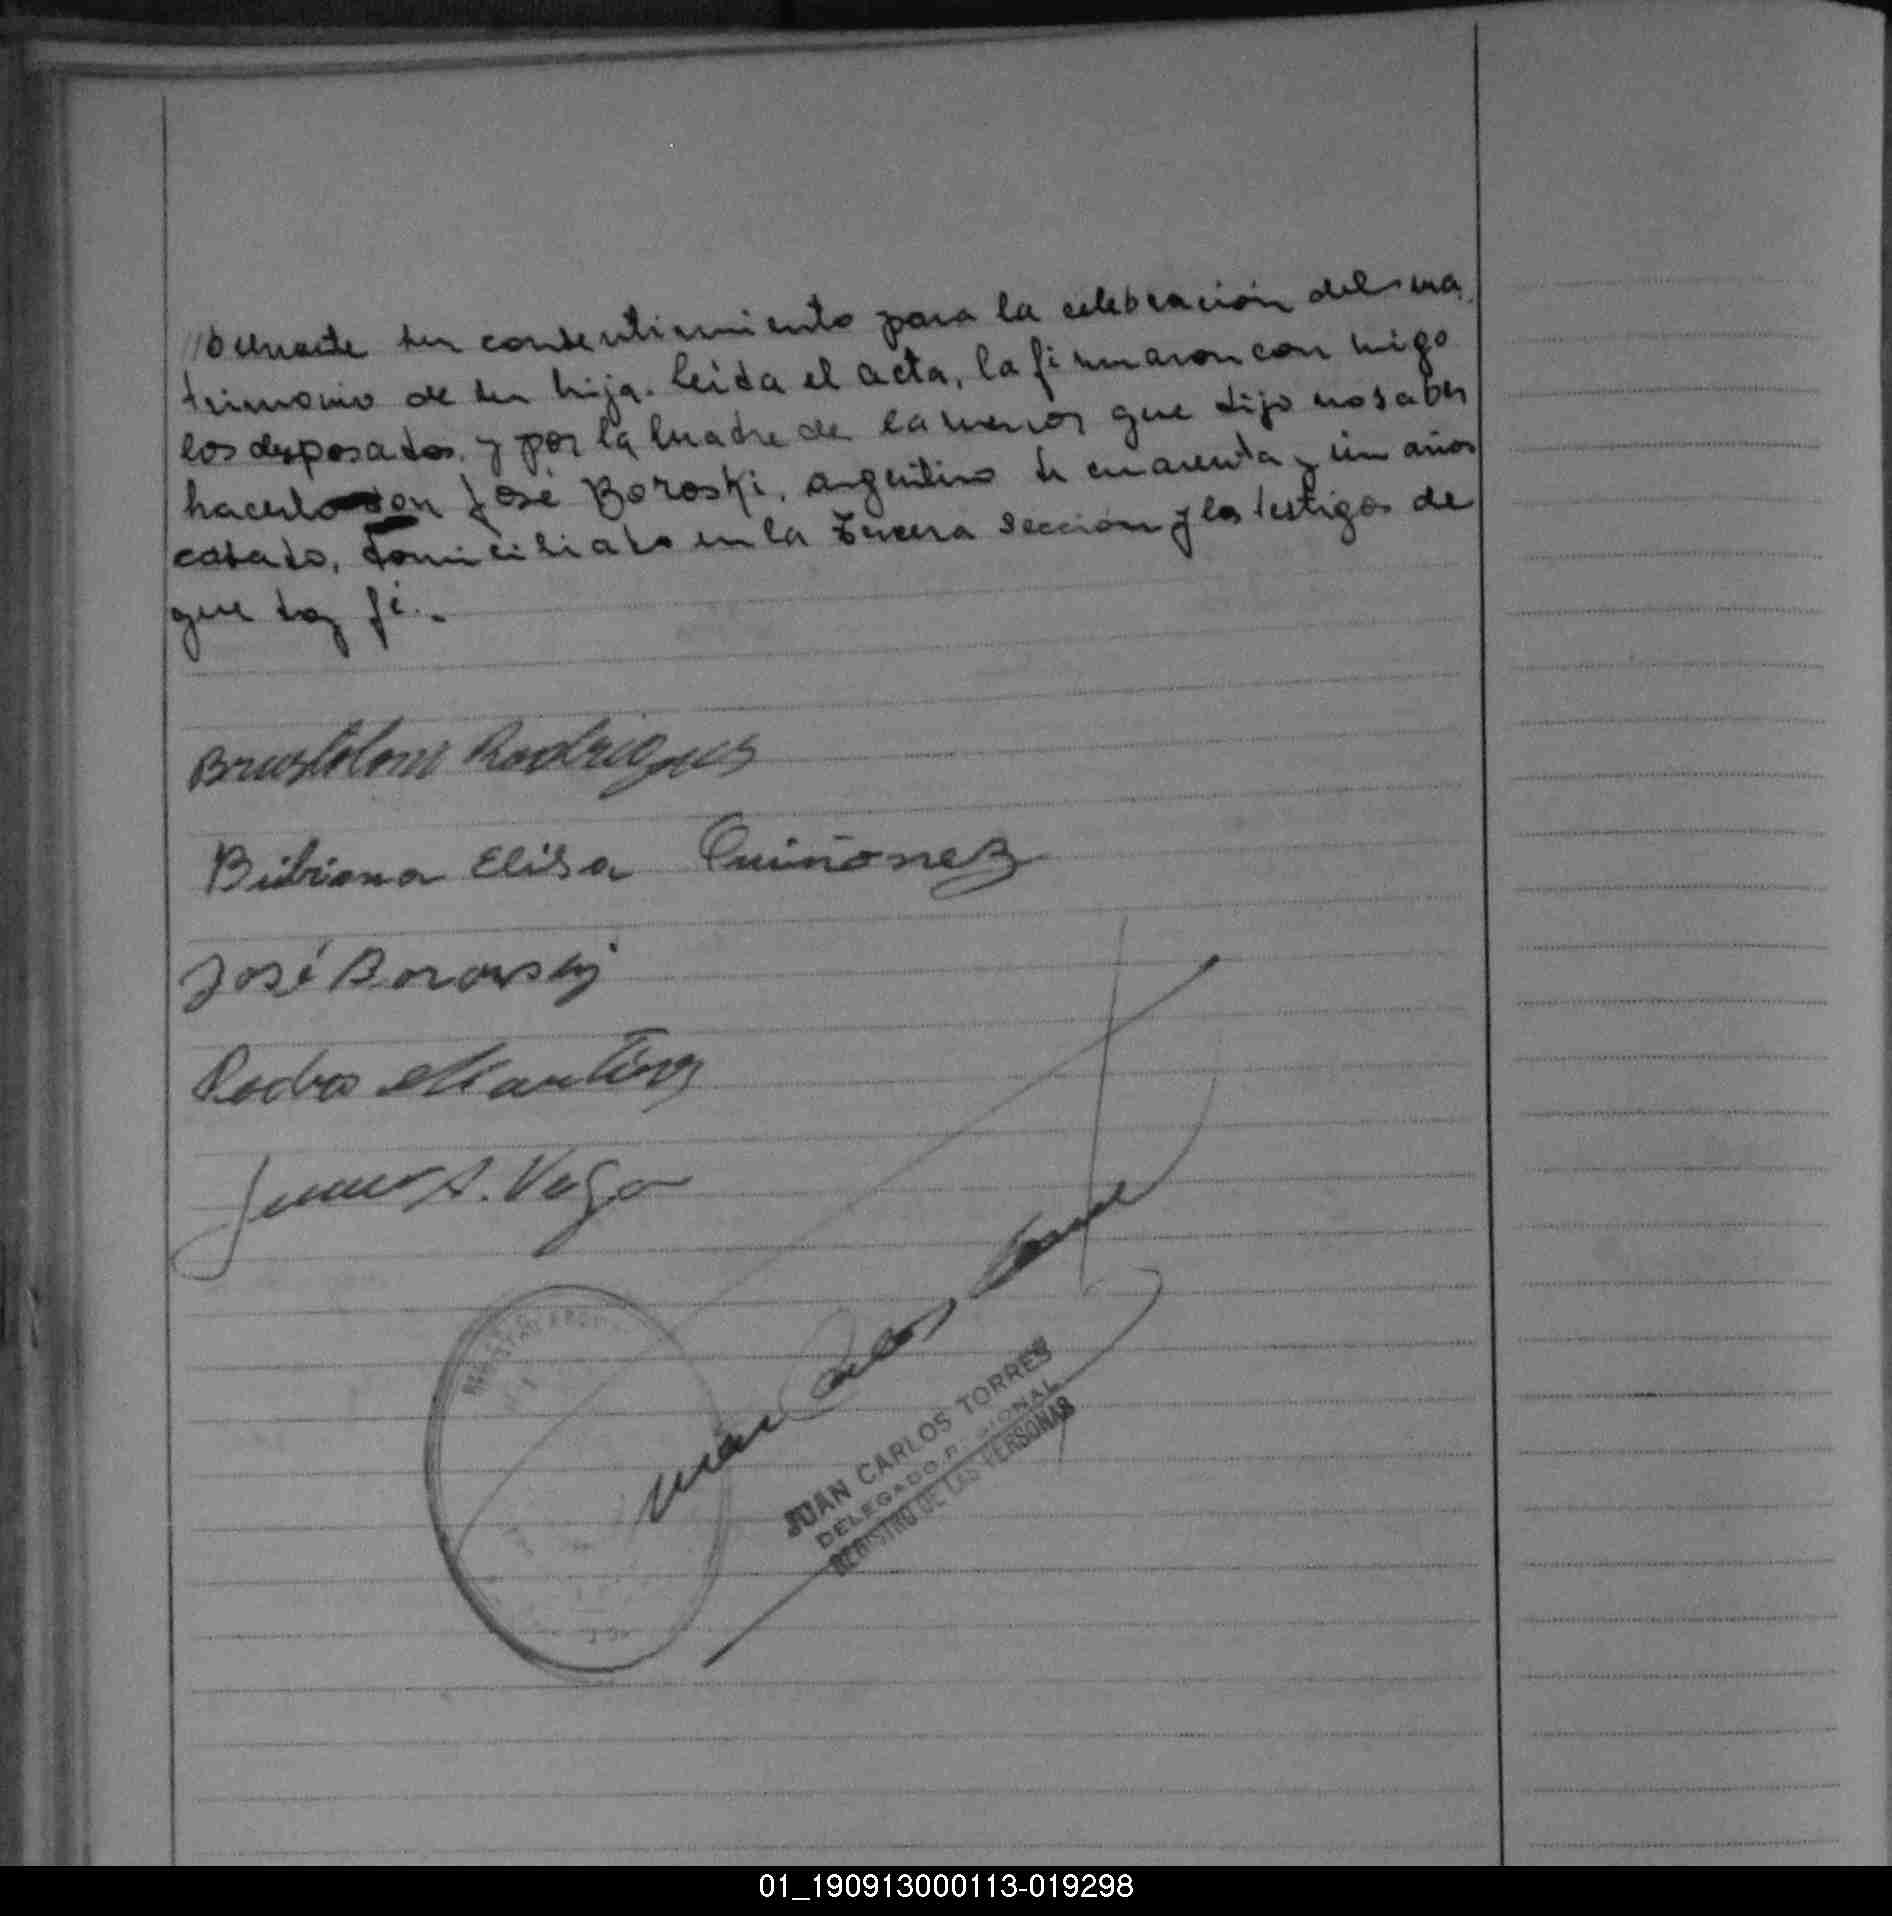 su consentimiento para la celebración del ma
trimonio de su hija. Leida el acta, la firmaron con migo
los desposados, y por la madre de la menor que dijo no saber
hacerlo don José Boroski, argentino de cuarenta y un años
casado, domiciliado en la tercera sección y los testigos de
que doy fé.
Rodrigues
Bibiana Elisa Quiñonez
José Borowski
Pedro Martinez
A. Vega
Juan Carlos Torres
JUAN CARLOS TORRES
DELEGADO
REGISTRO DE LAS PERSONAS
01_190913000113-019298